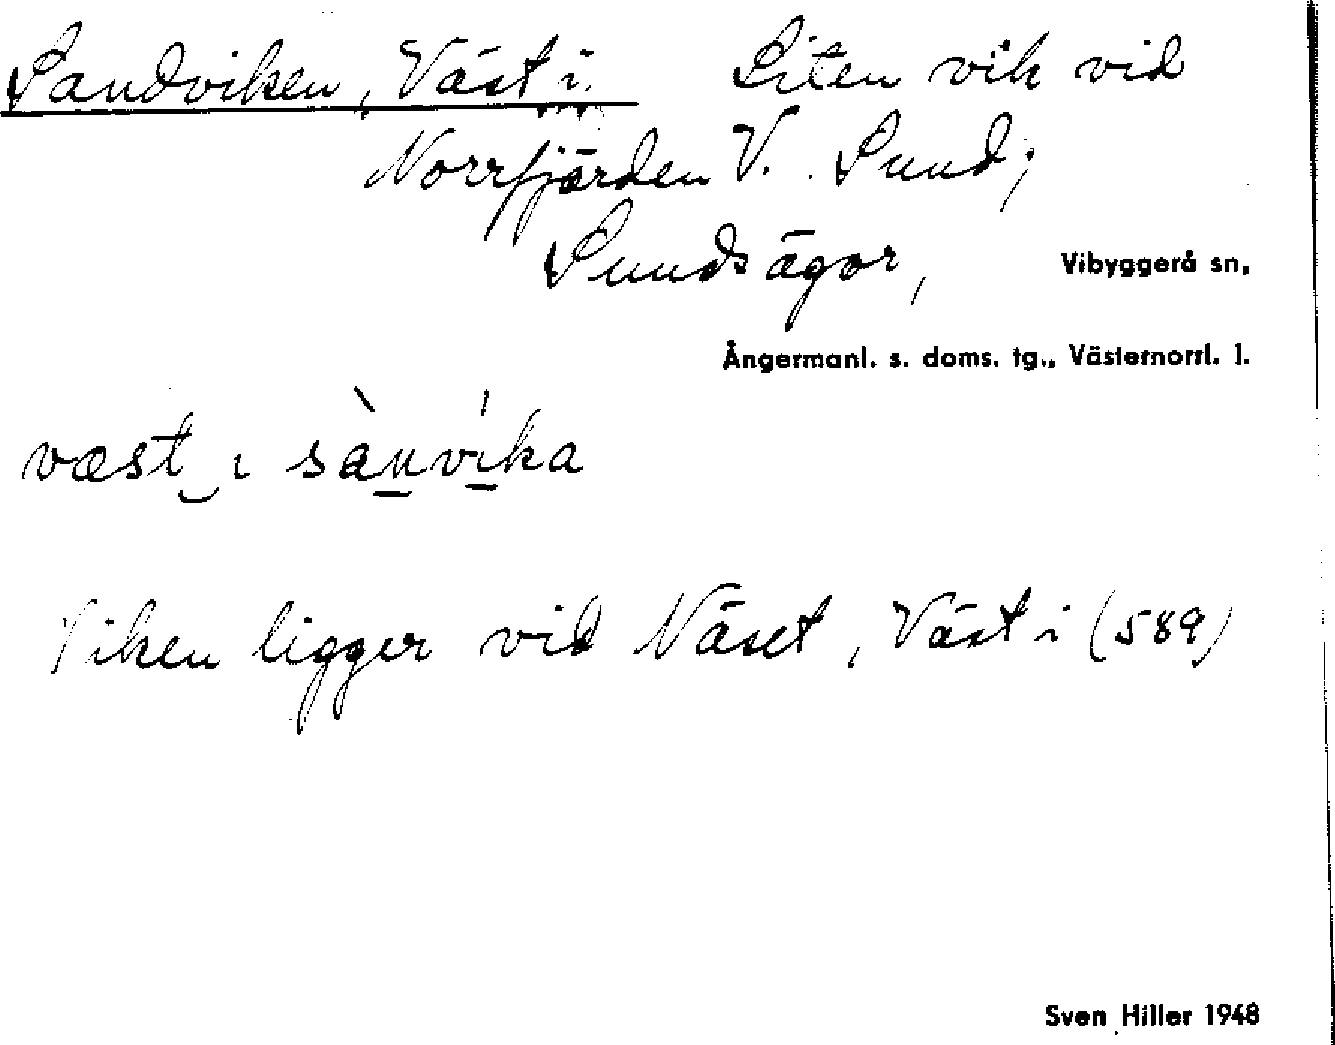 Sandviken, Väst i. Liten vik vid
Norrfjärden V. Sund;
Sunds ägor, Vibyggerå sn,
Ångermanl. s. doms. tg., Västernorrl. l.
væst ı sànvíka
Viken ligger vid Näset, Väst i (589)
Sven Hiller 1948